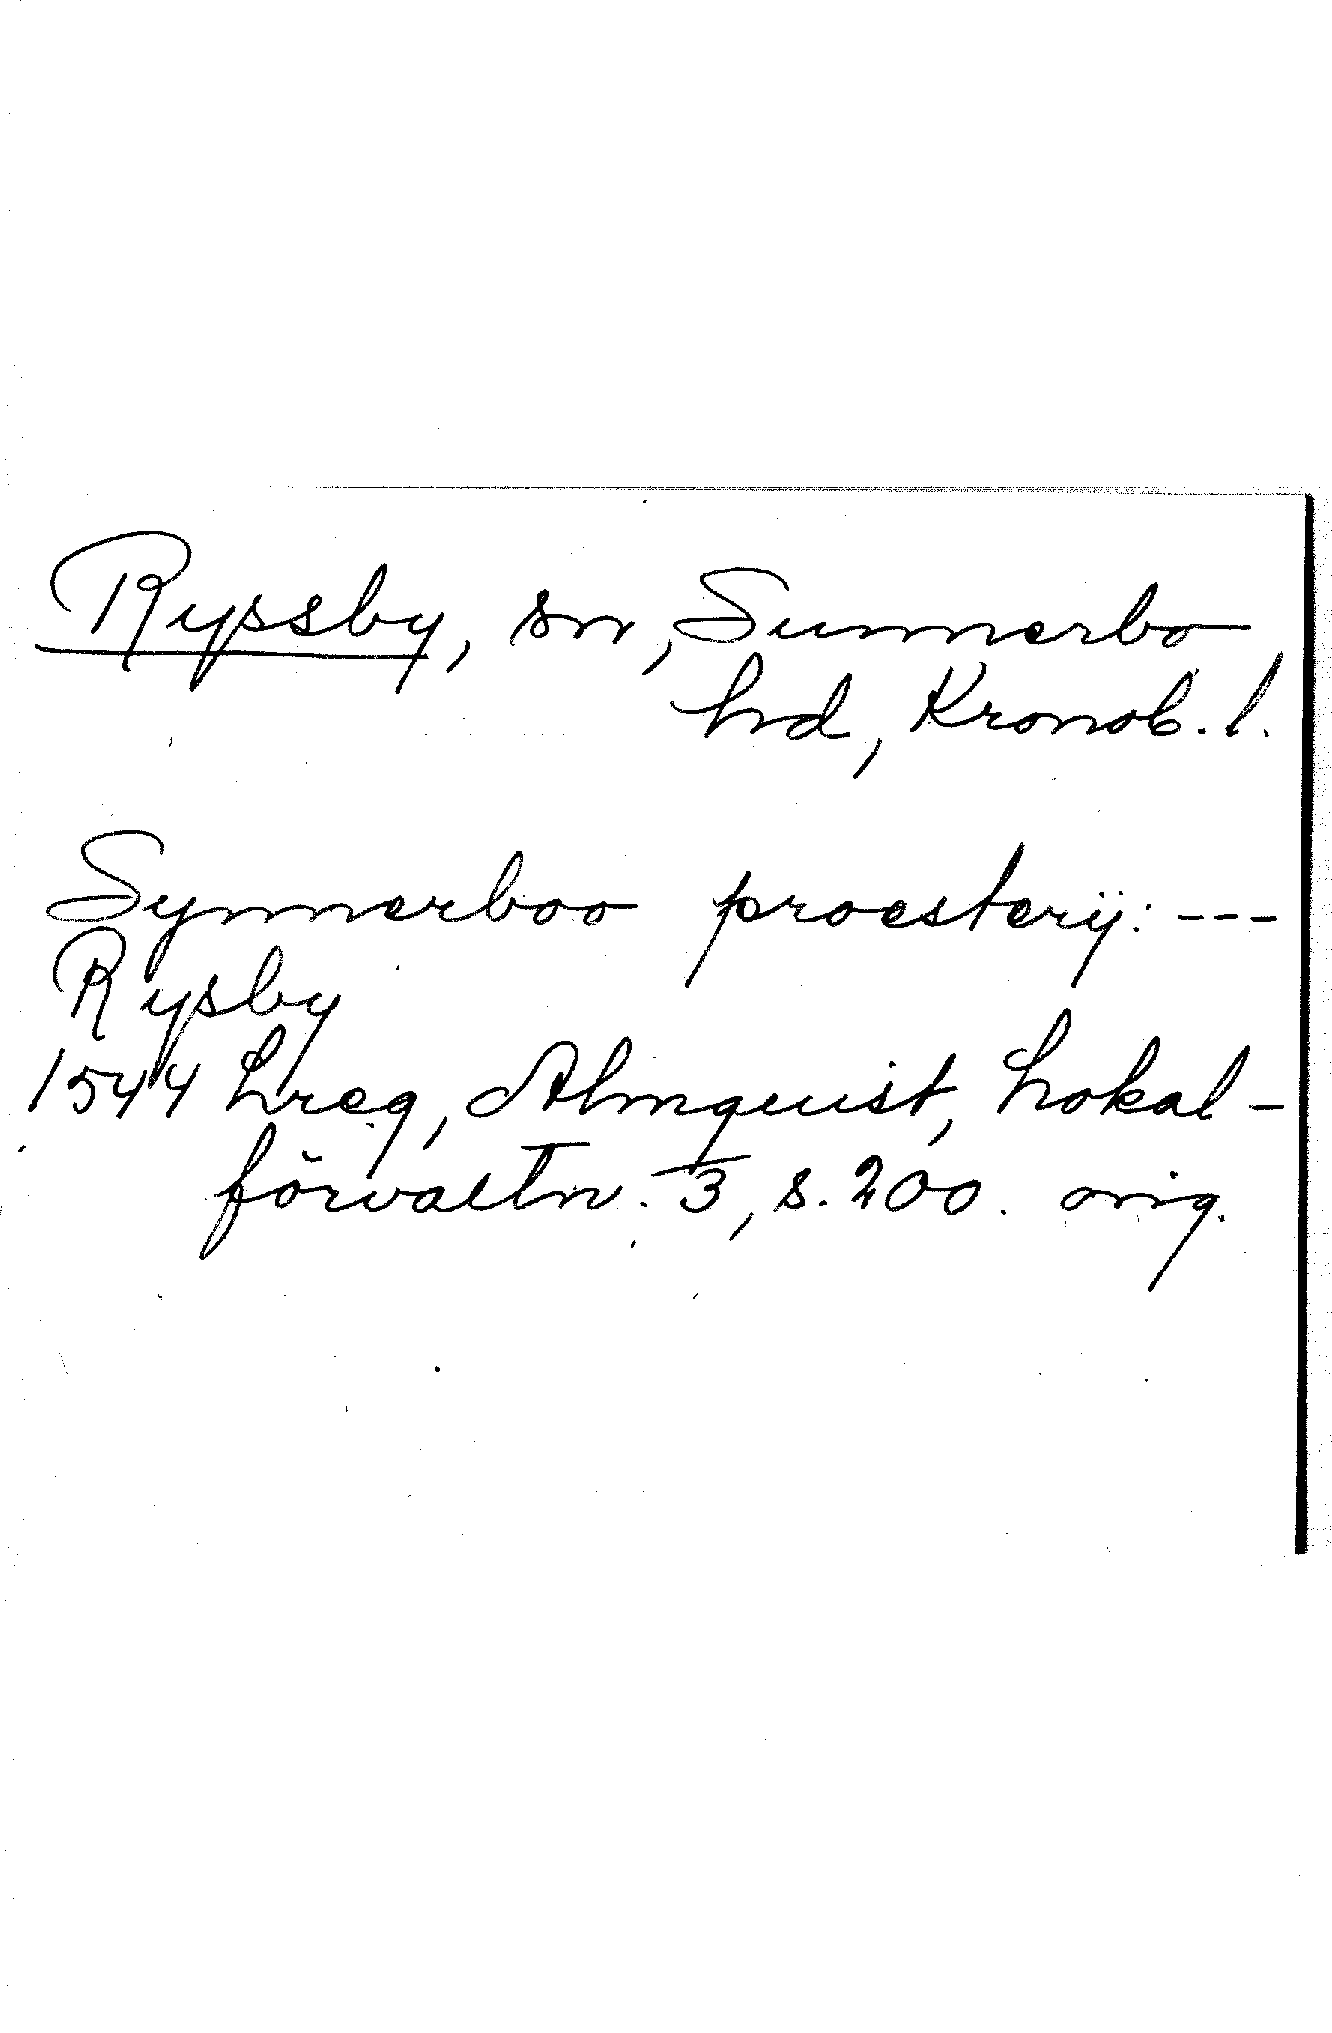 Ryssby, sn, Sunnerbo
hd, Kronob. l.
Synnerboo proesterij: ---
Rysby
1544 Lreg, Almquist, Lokal-
förvaltn. 3, s. 200. orig.